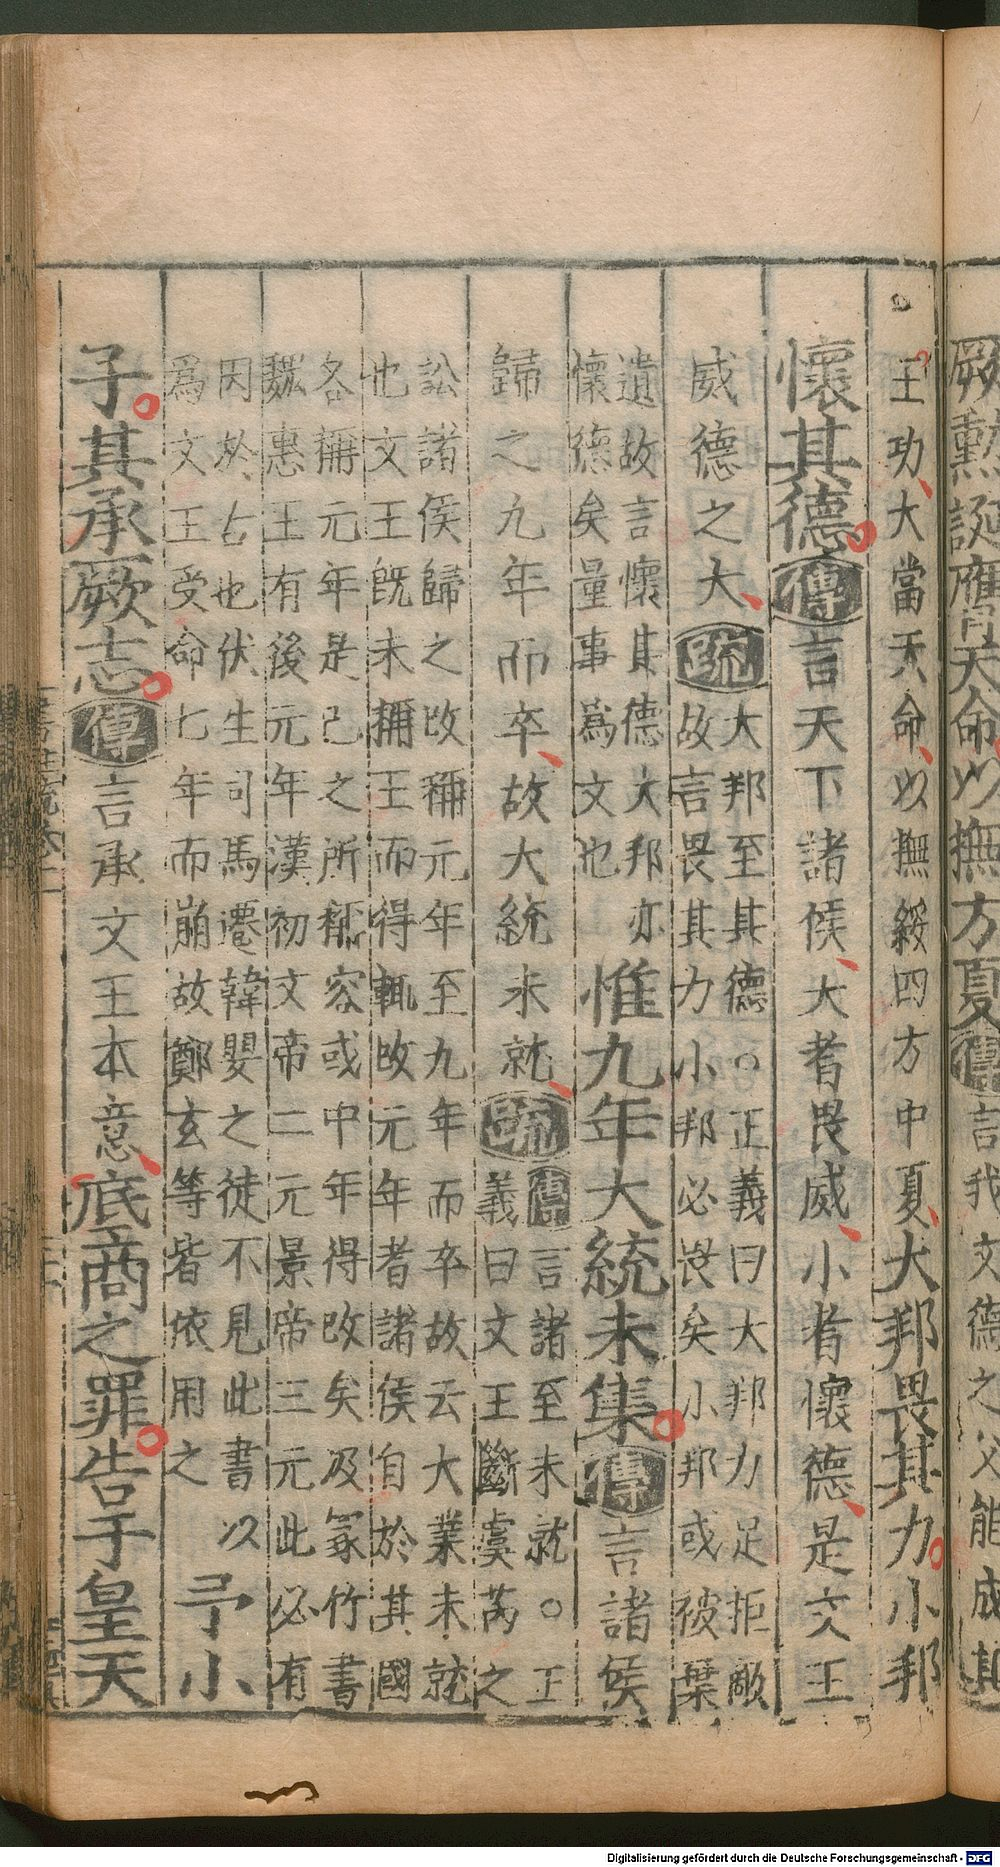 厥勲誕膺天命以撫方夏傳言我文德之父能成其
王功大當天命以撫綏四方中夏大邦畏其力小邦
懷其德傳言天下諸侯大者畏威小者懷德是文王
威德之大疏
大邦至其德○正義曰大邦力足拒敵
故言畏其力小邦必畏矣小邦或被棄
遺故言懷其德大邦亦
懷德矣量事爲文也
惟九年大統未集傳言諸侯
歸之九年而卒故大統未就疏
傳言諸至未就○正
義曰文王斷虞芮之
訟諸侯歸之改稱元年至九年而卒故云大業未就
也文王旣未稱王而得輒改元年者諸侯自於其國
各稱元年是己之所稱容或中年得改矣汲冢竹書
魏惠王有後元年漢初文帝二元景帝三元此必有
因於古也伏生司馬遷韓嬰之徒不見此書以
爲文王受命七年而崩故鄭玄等皆依用之
予小
子其承厥志傳言承文王本意底商之罪告于皇天
Digitalisierung gefördert durch die Deutsche Forschungsgemeinschaft - DFG